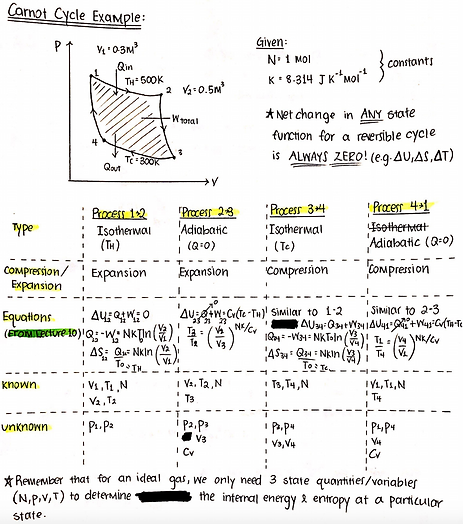 Carnot Cycle Example:
P
V₁ = 0.3m³
Qin
TH=500K
1
2
V₂ = 0.5m³
WTOTAL
4
3
Qout
TC=300K
V
Given:
N = 1 mol
K = 8.314 J K⁻¹ mol⁻¹
constants
★ Net change in ANY state
function for a reversible cycle
is ALWAYS ZERO! (e.g. ΔU, ΔS, ΔT)
Process 1→2 Process 2→3 Process 3→4 Process 4→1
Type
Isothermal (TH)
Adiabatic (Q=0)
Isothermal (TC)
Isothermal
Adiabatic (Q=0)
Compression/
Expansion
Expansion Expansion Compression Compression
Equations
(From Lecture 10)
ΔU₁₂=Q₁₂+W₁₂=0
Q₁₂=-W₁₂=NKT₀ln(V₂/V₁)
ΔS₁₂=Q₁₂/T₀=NKln(V₂/V₁)
T₀=TH
ΔU₂₃=Q₂₃+W₂₃=Cv(TC-TH)
T₃/T₂=(V₂/V₃)^NK/Cv
Similar to 1-2
ΔU₃₄=Q₃₄+W₃₄
Q₃₄=-W₃₄=NKT₀ln(V₃/V₄)
ΔS₃₄=Q₃₄/T₀=NKln(V₃/V₄)
Similar to 2-3
T₁/T₄=(V₄/V₁)^NK/Cv
Known
V₁,T₁,N
V₂,T₂
V₂,T₂,N
T₃
T₃,T₄,N
V₁,T₁,N
T₄
Unknown
P₁,P₂
P₂,P₃
V₃
Cv
P₃,P₄
V₃,V₄
P₁,P₄
V₄
Cv
★ Remember that for an ideal gas, we only need 3 state quantities/variables
(N,P,V,T) to determine the internal energy & entropy at a particular
state.